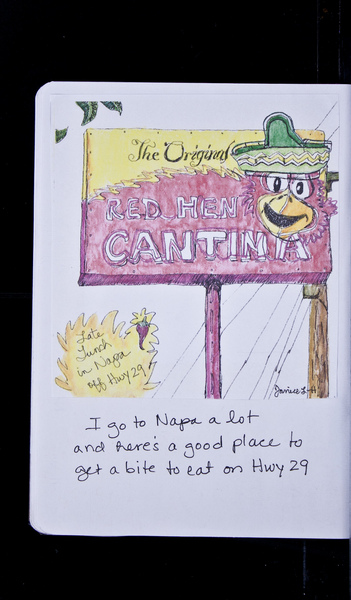 The Original
RED HEN
CANTINA
Late
Lunch
in Napa
off Hwy 29
Janice L-H.
I go to Napa a lot
and here's a good place to
get a bite to eat on Hwy 29